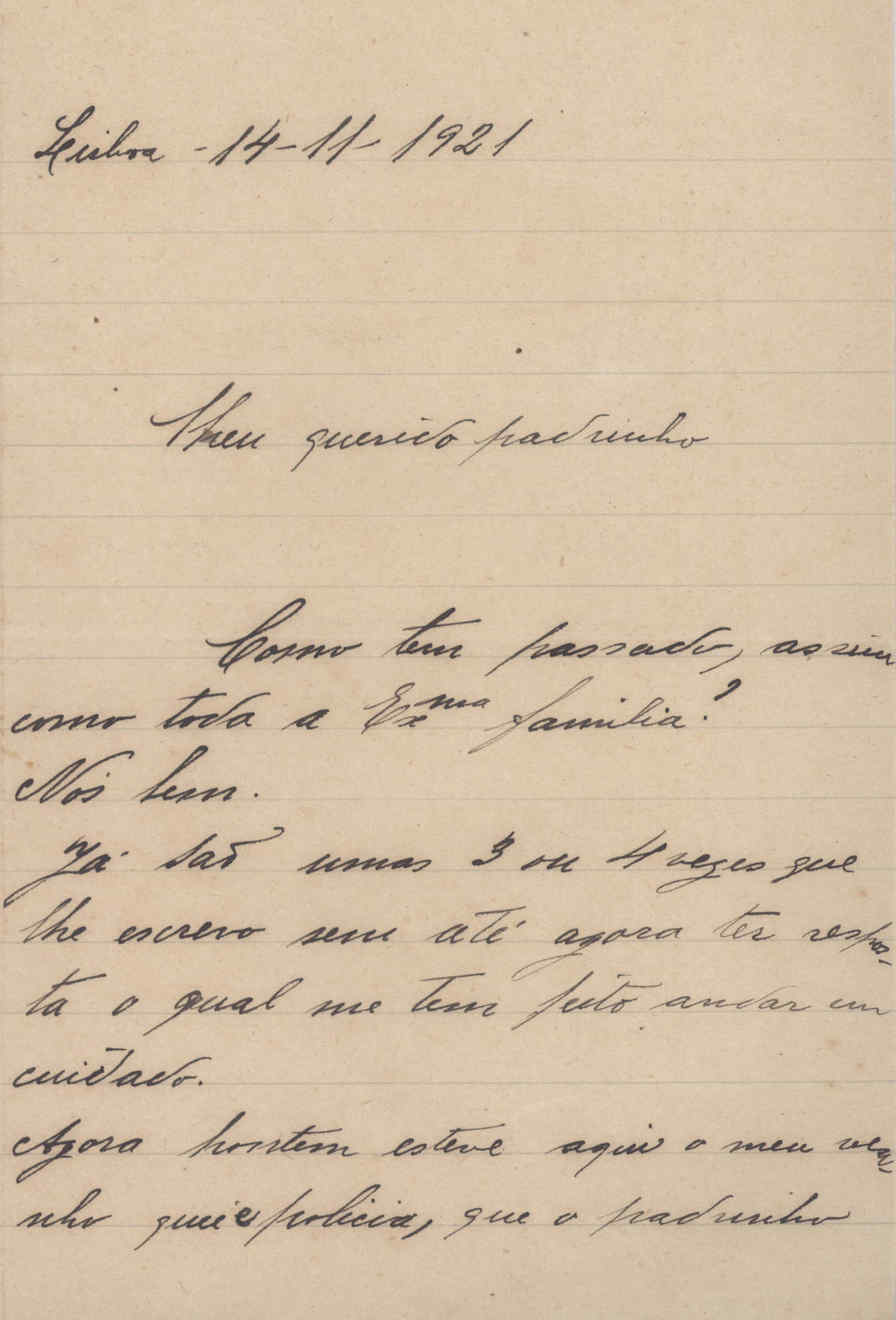 Lisboa - 14-11- 1921
Meu querido padrinho
Como tem passado, assim
como toda a Exma familia?
Nós bem.
Já saõ umas 3 ou 4 vezes que
lhe escrevo sem até agora ter respos-
ta o qual me tem feito andar em
cuidado.
Agora hontem esteve aqui o meu
nho que é policia, que o padrinho